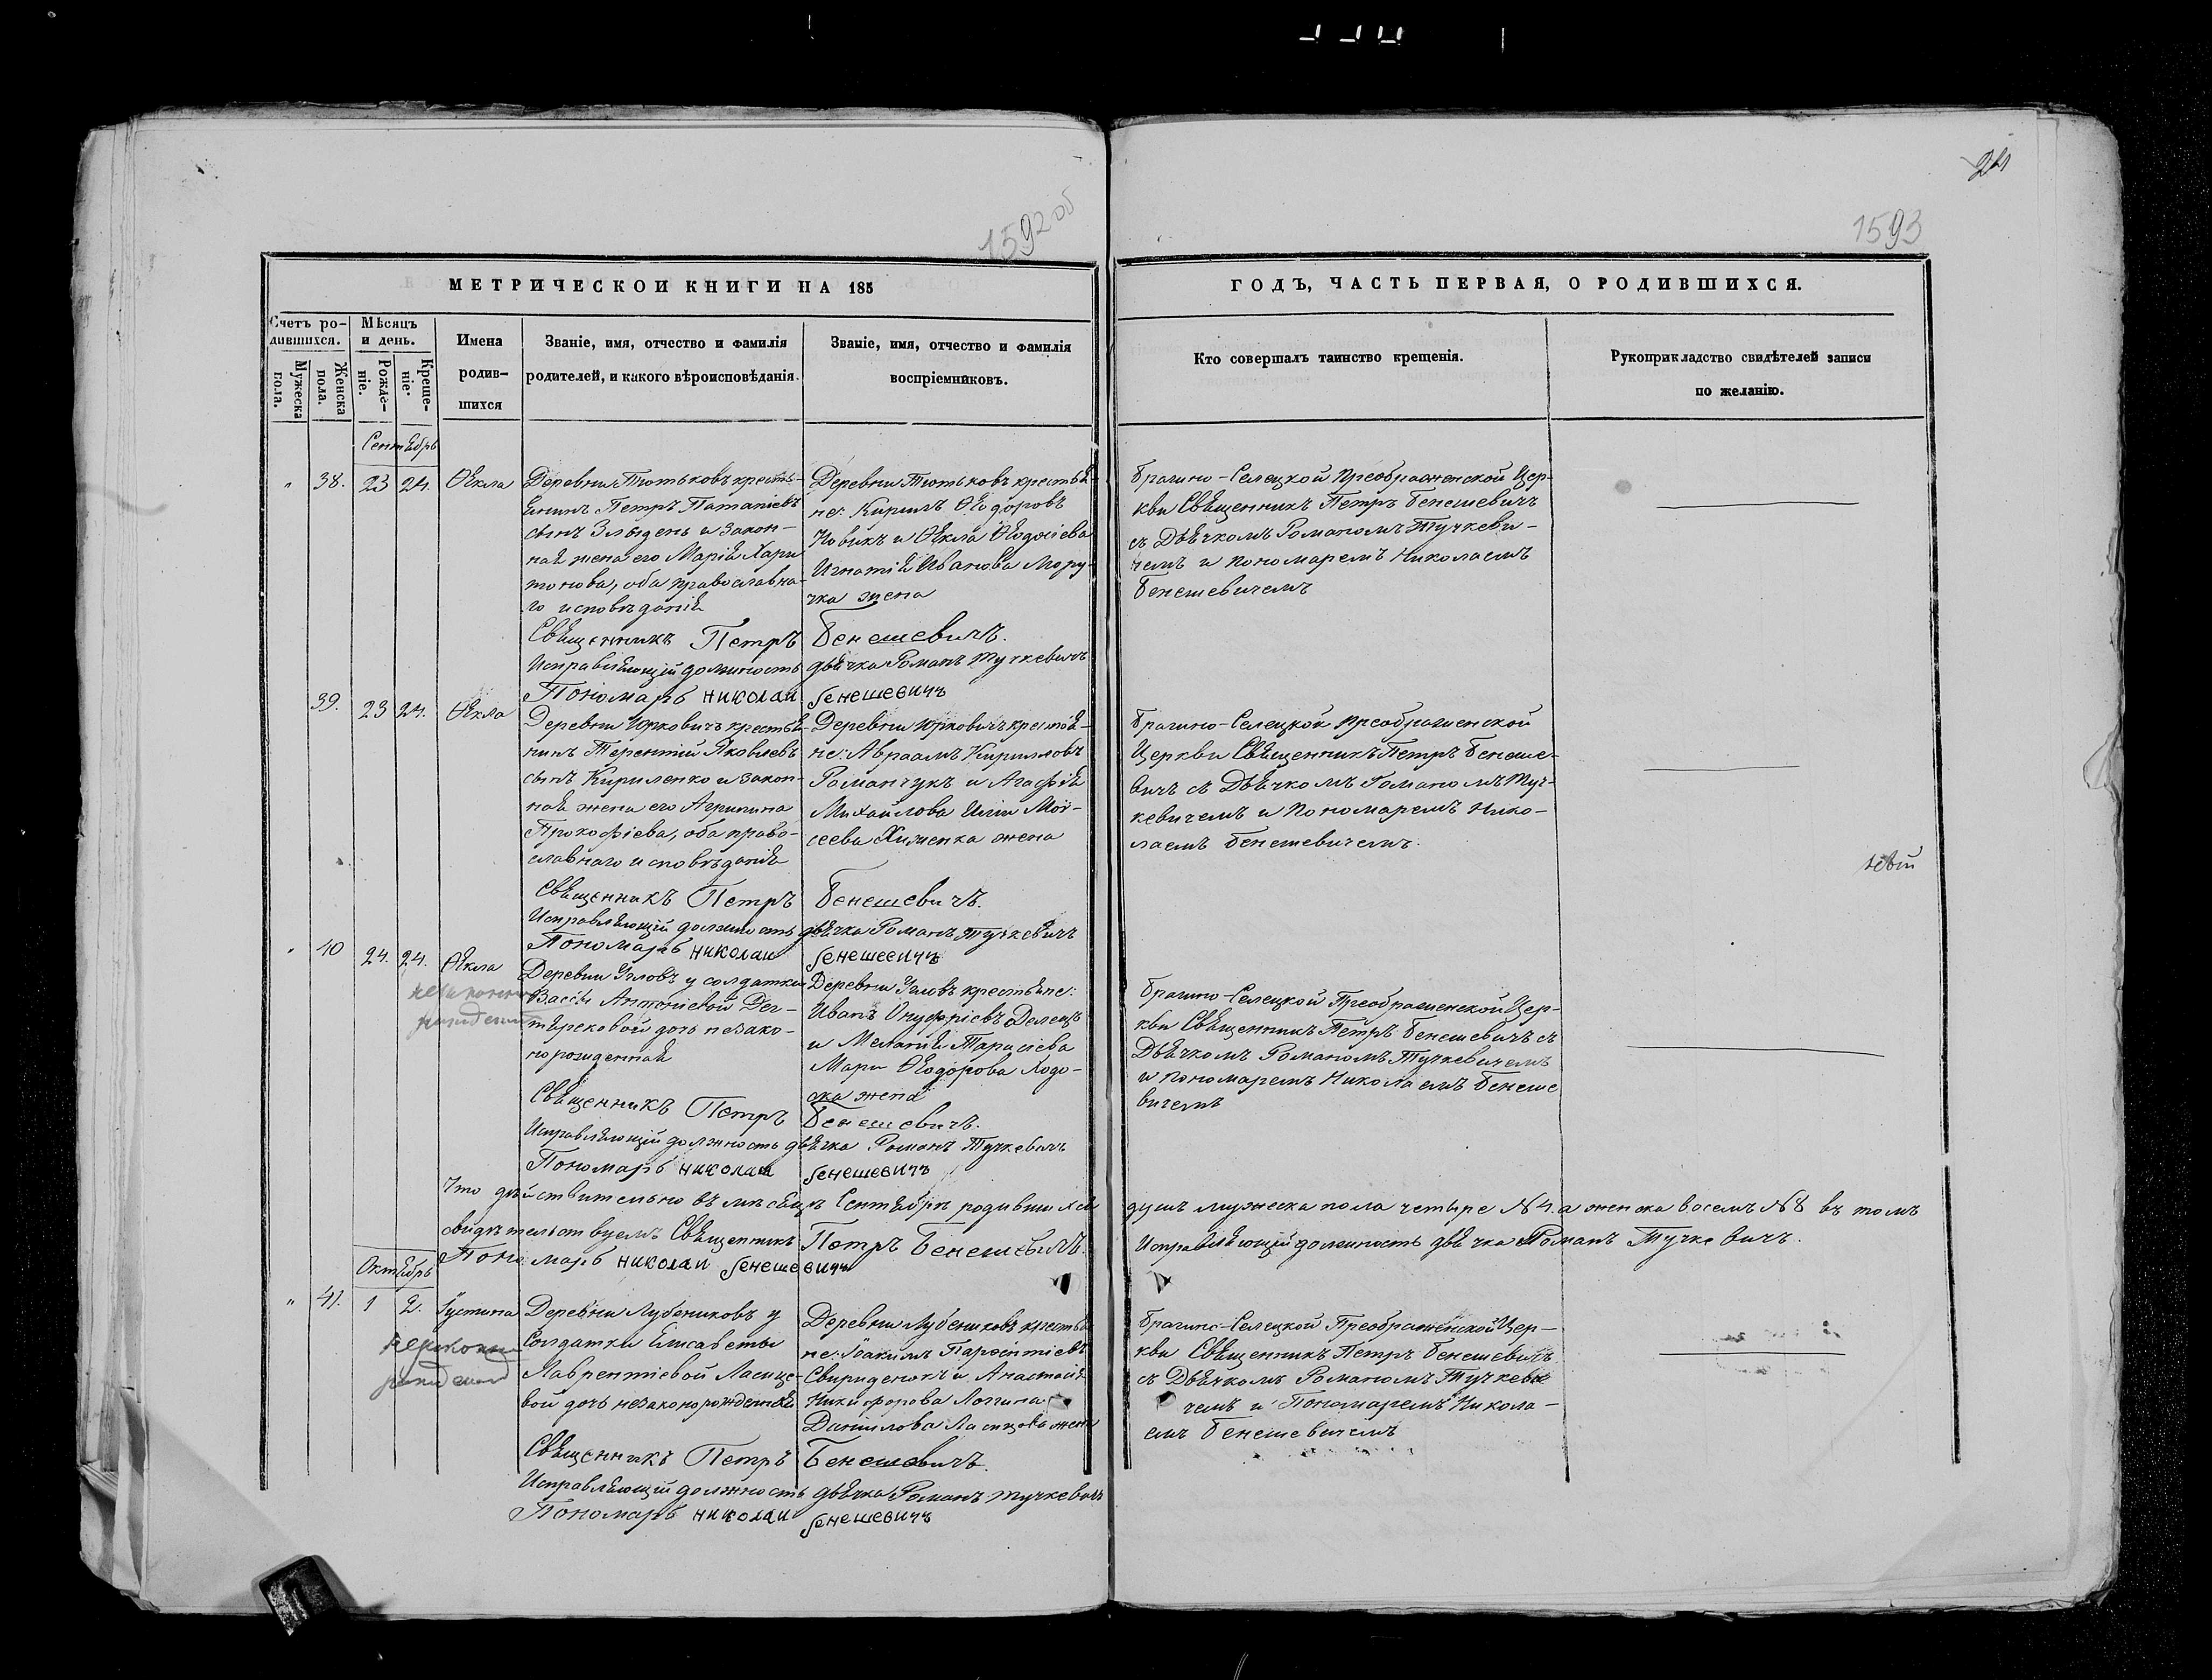 24
1592 об
1593
МЕТРИЧЕСКОЙ КНИГИ НА 185
ГОДЪ, ЧАСТЬ ПЕРВАЯ, О РОДИВШИХСЯ.
Счетъ ро-
дившихся.
Мужеска
пола.
Женска
пола.
Мѣсяцъ
и день.
Рожде-
ніе.
Креще-
ніе.
Имена
родив-
шихся
Званіе, имя, отчество и фамилія
родителей, и какого вѣроисповѣданія.
Званіе, имя, отчество и фамилія
воспріемниковъ.
Кто совершалъ таинство крещенія.
Рукоприкладство свидѣтелей записи
по желанію.
Сентябрь
" 38. 23 24. Ѳекла
Деревни Тютьковъ кресть-
янинъ Петръ Патапіевъ
сынъ Злыдень и закон-
ная жена его Марія Хари
тонова, оба православна-
го исповѣданія
Деревни Тютьковъ крестья-
не: Кирилъ Ѳеодоровъ
Новикъ и Ѳекла Ѳеодосіева
Игнатія Иванова Мору-
чка жена
Брагино-Селецкой Преображенской Цер-
кви Священникъ Петръ Бенешевичъ
съ Дьячкомъ Романомъ Тучкеви-
чемъ и пономаремъ Николаемъ
Бенешевичемъ
Священникъ Петръ Бенешевичъ.
Исправляющій должность дьячка Романъ Тучкевичъ
Пономарь Николай Бенешевичъ
39. 23 24. Ѳекла
Деревни Юрковичъ крестья-
нинъ Терентій Яковлевъ
сынъ Кириленко и закон-
ная жена его Агрипина
Прокофіева, оба право-
славнаго исповѣданія
Деревни Юрковичъ крестья-
не: Авраамъ Кирилловъ
Романчукъ и Агафія
Михайлова Иліи Мой-
сеева Хиженка жена
Брагино-Селецкой Преображенской
Церкви Священникъ Петръ Бенеше-
вичъ съ Дьячкомъ Романомъ Туч-
кевичемъ и Пономаремъ Нико-
лаемъ Бенешевичемъ.
Священникъ Петръ Бенешевичъ.
Исправляющій должность дьячка Романъ Тучкевичъ
Пономарь Николай Бенешевичъ
" 40 24. 24. Ѳекла
Деревни Угловъ у солдатки
Вассы Антоніевой Дег-
тярековой дочь незако-
норожденная
Деревни Угловъ крестьяне:
Иванъ Онуфріевъ Делецъ
и Меланія Тарасіева
Марки Ѳеодорова Ходо-
ка жена
Брагино-Селецкой Преображенской Цер-
кви Священникъ Петръ Бенешевичъ съ
Дьячкомъ Романомъ Тучкевичемъ
и Пономаремъ Николаемъ Бенеше
вичемъ
Священникъ Петръ Бенешевичъ.
Исправляющій должность дьячка Романъ Тучкевичъ
Пономарь Николай Бенешевичъ
Что дѣйствительно въ мѣсяцѣ Сентябрѣ родившихся душъ мужеска пола четыре №4. а женска восемъ №8 въ томъ
свидѣтельствуемъ Священникъ Петръ Бенешевичъ. Исправляющій должность дьячка Романъ Тучкевичъ.
Пономарь Николай Бенешевичъ
Октябрь
" 41. 1 2. Іустина
Деревни Лубениковъ у
Солдатки Елисаветы
Лаврентіевой Ласице-
вой дочь незаконорожденная
Деревни Лубениковъ крестья
не: Іоакимъ Пароентіевъ
Свириденокъ и Анастасія
Никифорова Логина
Даніилова Ласицова жена
Брагино-Селецкой Преображенской Цер-
кви Священникъ Петръ Бенешевичъ
съ Дьячкомъ Романомъ Тучкеви
чемъ и Пономаремъ Никола-
емъ Бенешевичемъ
Священникъ Петръ Бенешевичъ.
Исправляющій должность дьячка Романъ Тучкевичъ
Пономарь Николай Бенешевичъ